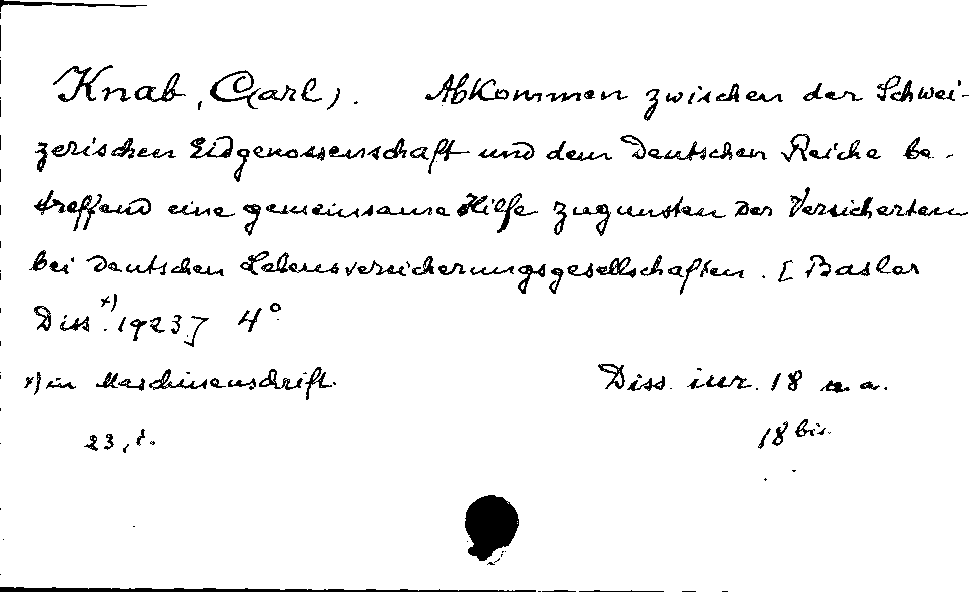 Knab, Carl). Abkommen zwischen der Schwei-
zerischen Eidgenossenschaft und dem Deutschen Reiche be-
treffend eine gemeinsame Hilfe zugunsten der Versicherten
bei deutschen Lebensversicherungsgesellschaften. [Basler
Diss.x) 1923] 4°
x) in Maschinenschrift.
Diss. iur. 18 u. a.
23,
18 bis